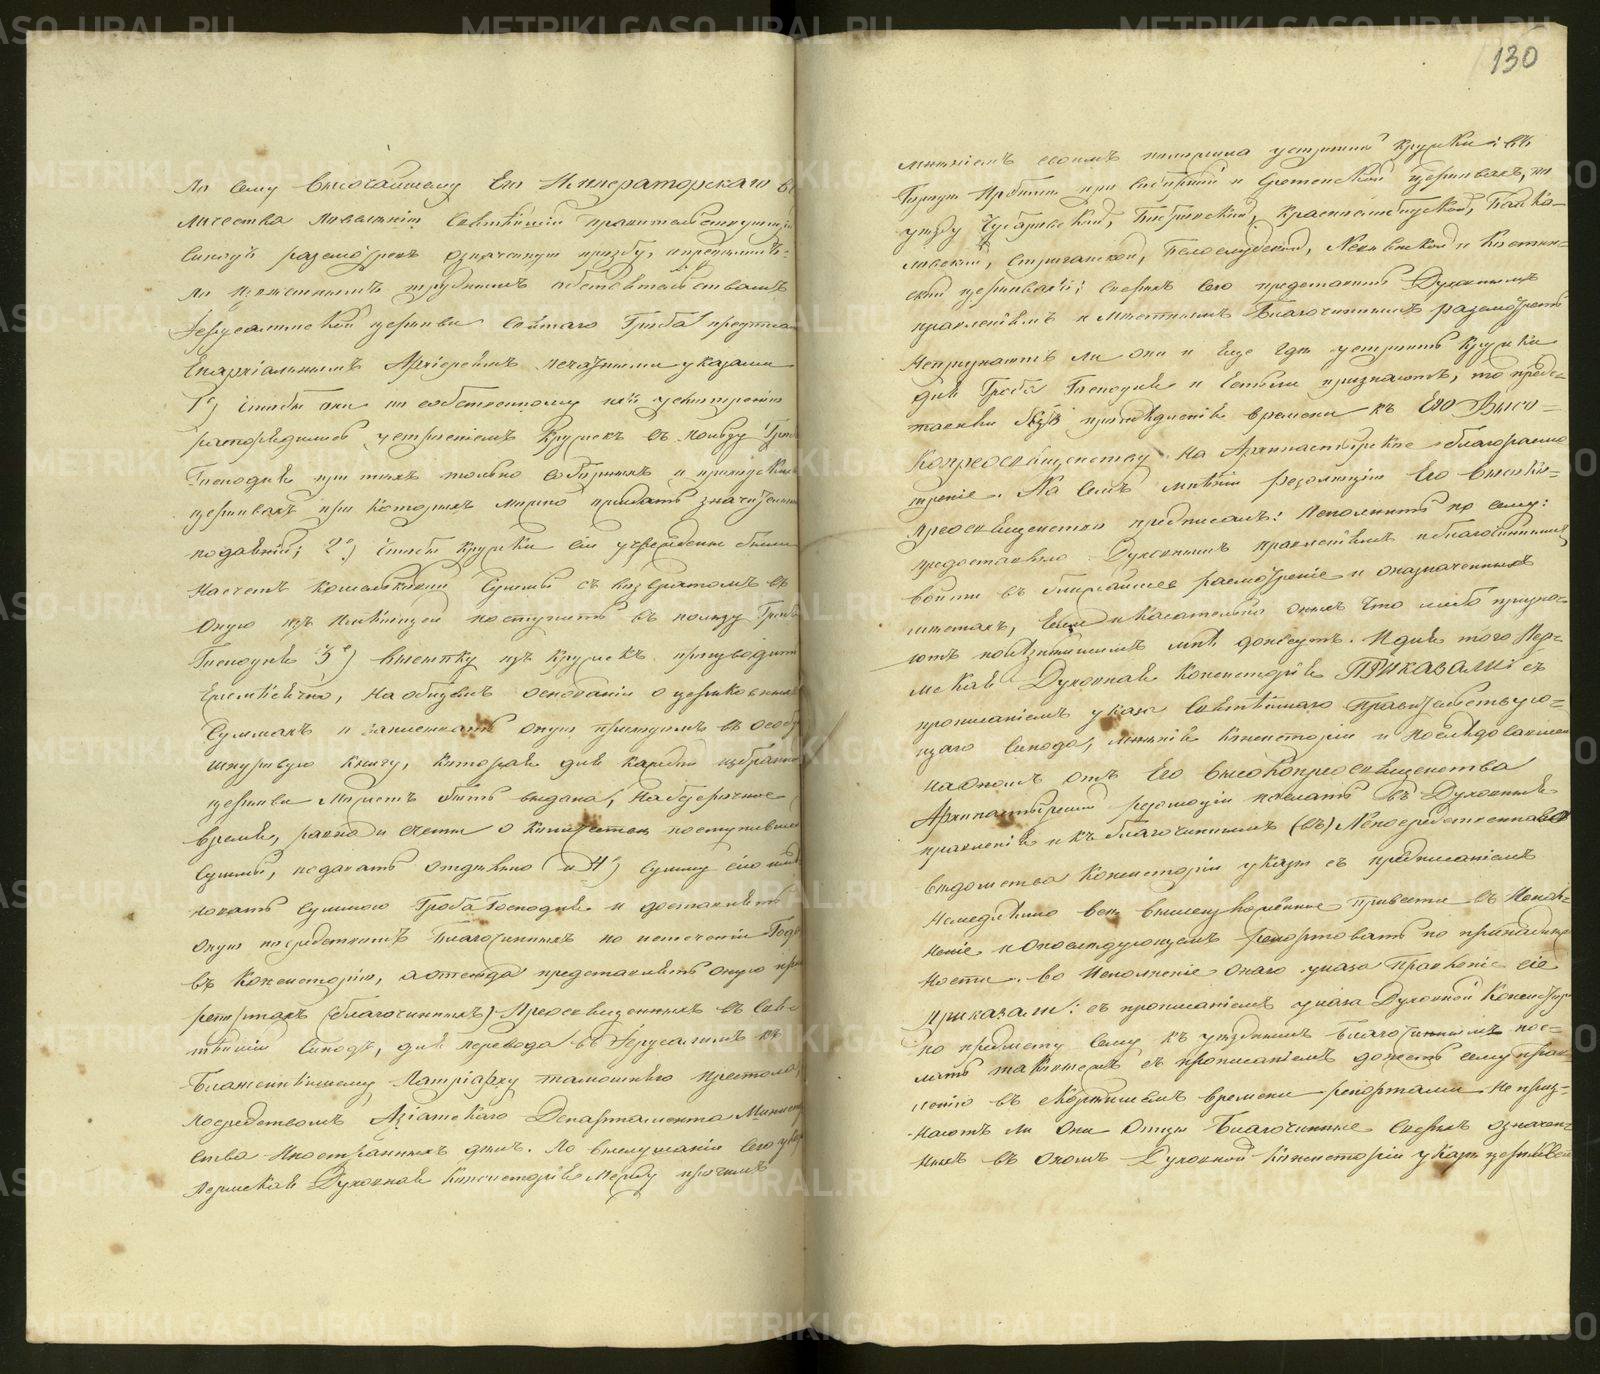 130
По сему Высочайшему Его Императорскаго Ве
личества повелѣнію Святѣйшій правительствующій
Сѵнодъ разсмотрѣвъ означенную прозьбу,
по извѣстнымъ труднымъ обстоятельствамъ
Іерусалимской церкви Святаго Гроба предписалъ
Епархіальнымъ Архіереямъ печатными указами
1е, чтобы они по собственному ихъ усмотренію
распорядились устроеніемъ кружекъ въ пользу Гроба
Господня при тѣхъ только соборныхъ и приходскихъ
церквахъ при которыхъ можно ожидать значительныхъ
подаяній; 2е) чтобы кружки сіи учреждены были
на счетъ кошельковой суммы съ возвратомъ въ
оную изъ имѣющей поступить въ пользу Гроба
Господня 3е) высыпку изъ кружекъ производить
Ежемѣсячно, на общемъ основаніи о церковныхъ
суммахъ и записывать оную приходомъ въ особую
шнуровую книгу, которая для каждой избранной
церкви можетъ быть выдана, на безсрочное
время, равно и счеты о количествѣ поступившей
суммы, подавать отдѣльно и 4е) сумму сію имѣ
новать суммою Гроба Господня и доставлять
оную посредствомъ Благочинныхъ по истеченіи Года
въ Консисторію, а оттуда представлять оную при
репортахъ (благочинныхъ) Преосвященныхъ въ Свя
тѣйшій Сѵнодъ, для перевода въ Іерусалимъ къ
Блаженнѣйшему Патріарху тамошняго Престола,
посредствомъ Азіатскаго Департамента Министер
ства Иностранныхъ дѣлъ. По выслушаніи сего указа
Пермская Духовная Консисторія между прочимъ
мнѣніемъ своимъ положила устроить кружки: въ
Городѣ Ирбити при Соборной и Срѣтенской церквахъ, по
уѣзду Чубаровской, Бобровской, Краснослободской, Байка-
ловской, Стриганской, Белослудской, Невьянской и Костин-
ской церквахъ; сверхъ сего предоставить Духовнымъ
правленіямъ и мѣстнымъ Благочиннымъ разсмотрѣть
непризнаютъ ли они и еще гдѣ устроить кружки
для Гроба Господня и естьли признаютъ, то предс-
тавили бы въ продолженіе времени къ Его Высо-
копреосвященству на Архипастырское благоразсмо
треніе. На семъ мнѣніи резолюціею Его Высоко-
преосвященства предписалъ: Исполнить по сему:
предоставляю Духовнымъ правленіямъ и благочиннымъ
войти въ ближайшее разсмотреніе и о назначенныхъ
мѣстахъ, Если и касательно оныхъ что либо призна-
ютъ полезнѣйшимъ мнѣ донесутъ. И для того Пер-
мская Духовная Консисторія ПРИКАЗАЛИ: съ
прописаніемъ указа Святѣйшаго Правительствую-
щаго Сѵнода, мнѣнія Консисторіи и послѣдовавшей
на ономъ отъ Его Высокопреосвященства
Архипастырской резолюціи послать въ Духовныя
правленія и къ благочиннымъ (въ) Непосредственнаго
вѣдомства Консисторіи указы съ предписаніемъ
немедленно все вышеизложенное привести въ Испол-
неніе и о послѣдующемъ репортовать по принадлеж
ности. во Исполненіе онаго указа Правленіе сіе
приказали: съ прописаніемъ указа Духовной Консистор
по предмету сему къ уѣзднымъ Благочиннымъ пос-
лать таковыежъ съ прописаніемъ донесть сему прав-
ленію въ скорѣйшемъ времени репортами не призн-
наютъ ли они Отцы Благочинные сверхъ означен
ныхъ въ ономъ Духовной Консисторіи указѣ церквей